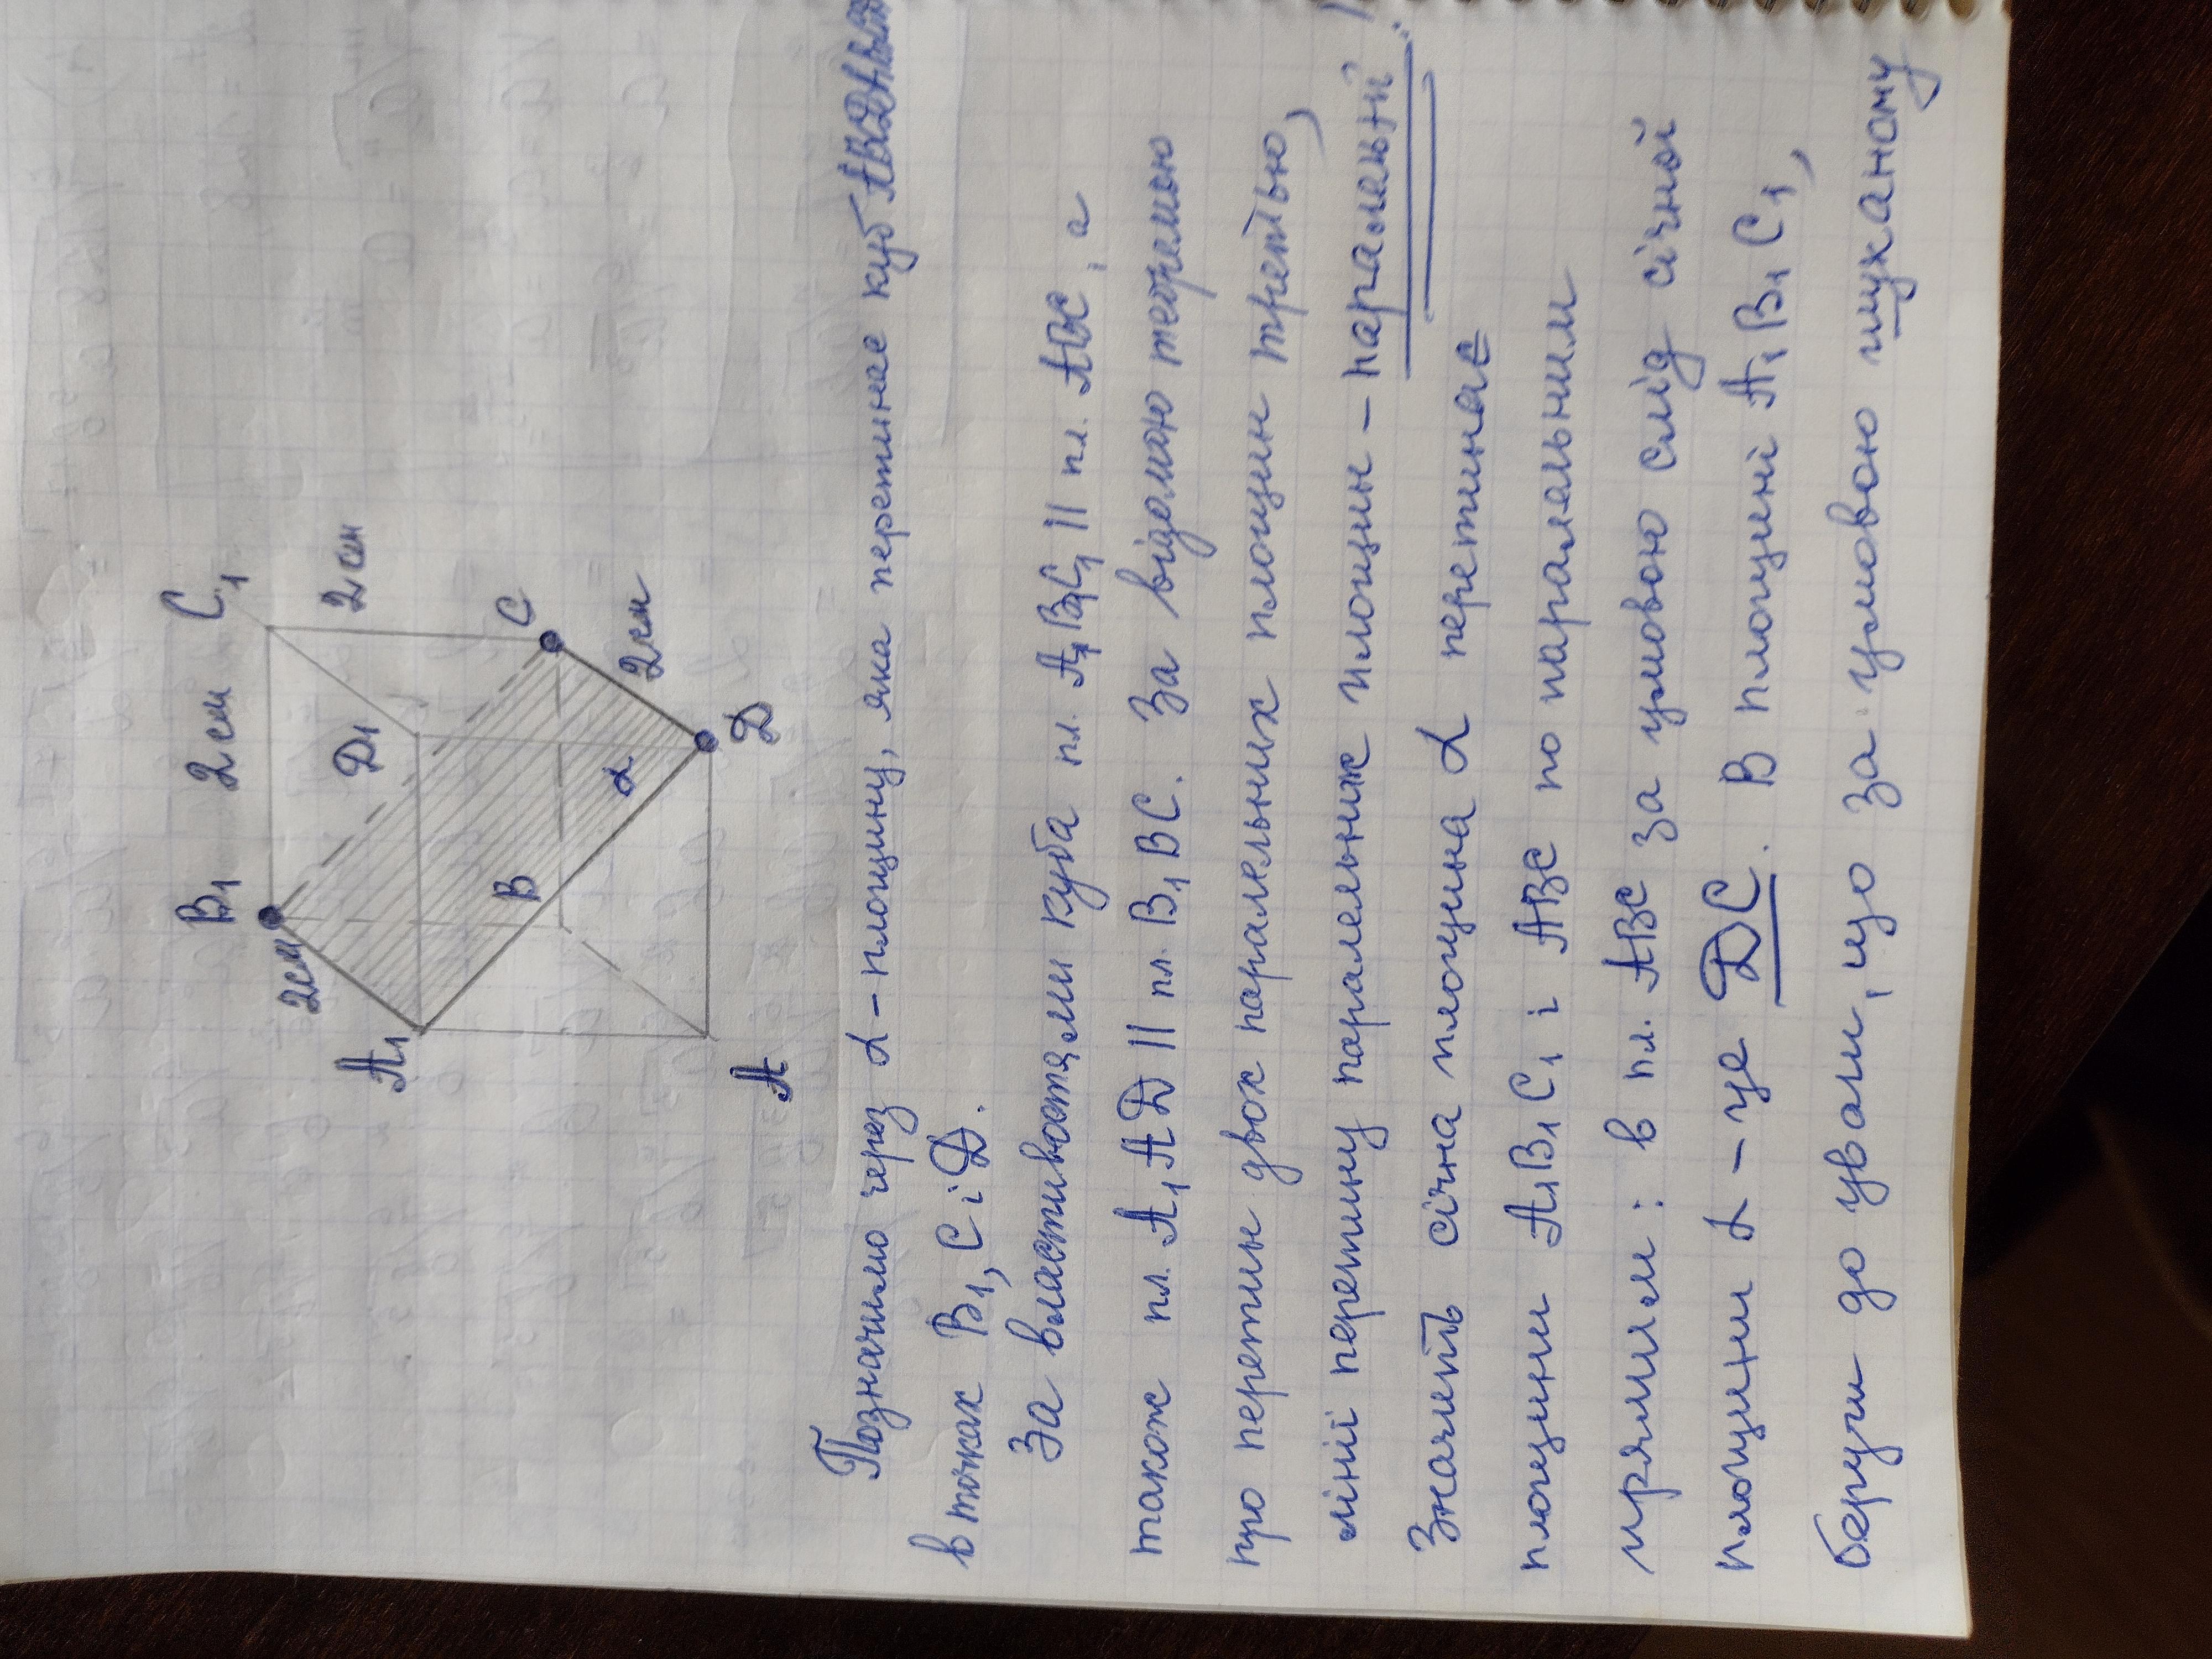 B₁ 2 см C₁
2см
2 см
A₁
D₁
B
C
α
2 см
A
D
Позначимо через α – площину, яка перетинає куб
в точках B₁, C і D.
За властивостями куба пл. A₁B₁C₁ || пл. ABC, а
також пл. A₁AD || пл. B₁BC. За відомою теоремою
про перетин двох паралельних площин третьою,
лінії перетину паралельних площин – паралельні
Значить січна площина α перетинає
площини A₁B₁C₁ і ABC по паралельним
прямим: в пл. ABC за умовою слід січної
площини α – це DC. В площині A₁B₁C₁,
беручи до уваги, що за умовою шуканому